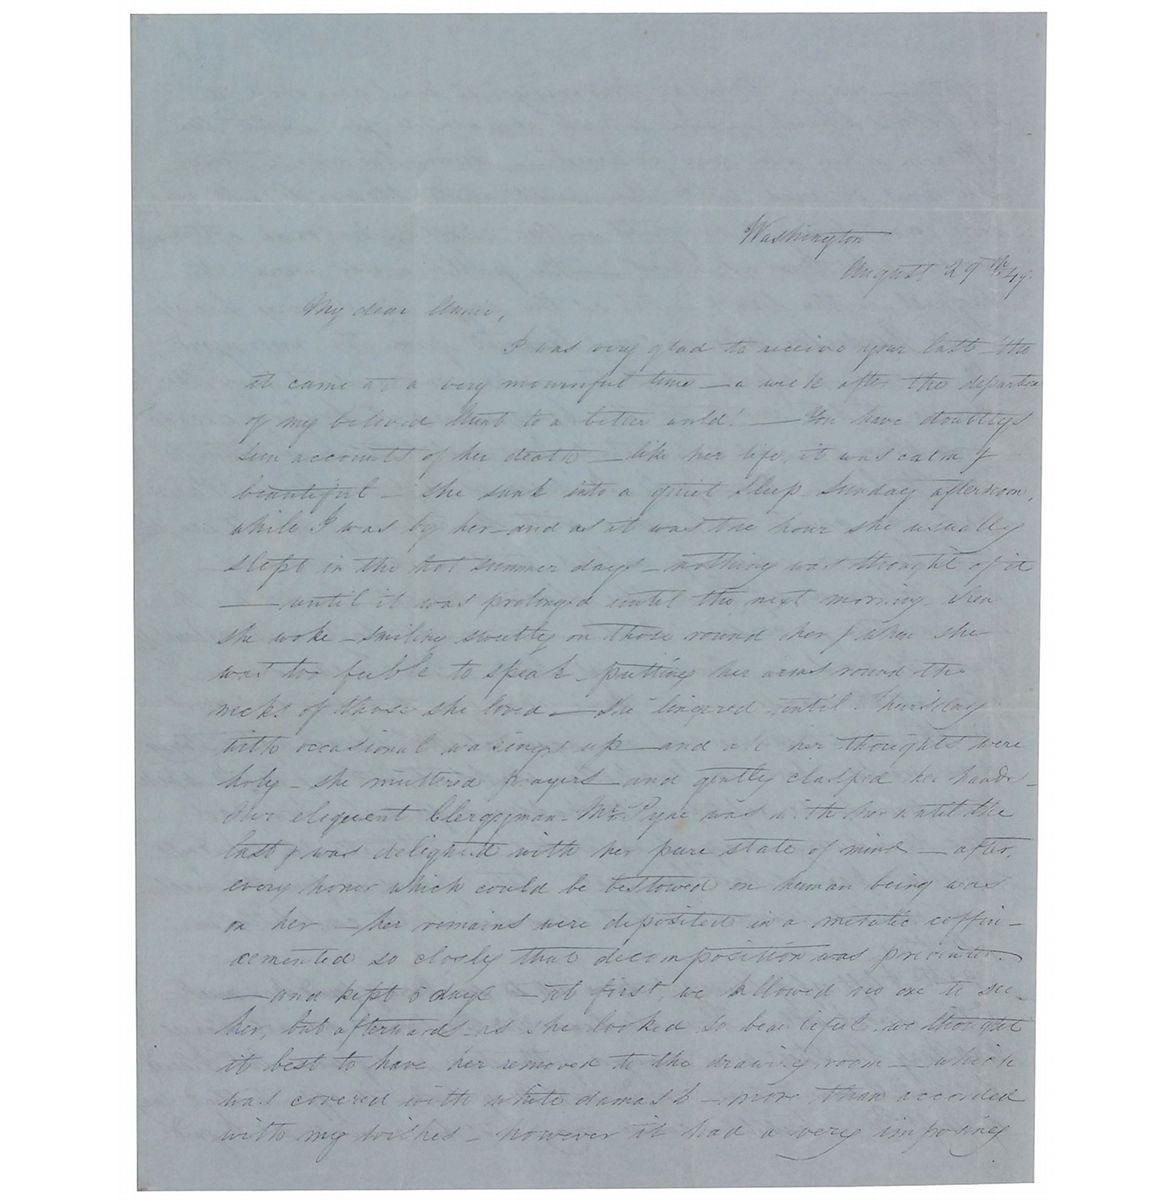 Washington
August 29th 49.
My dear Annie,
I was very glad to receive your last – tho
it came at a very mournful time – a week after the departure
of my beloved Aunt to a better world! — You have doubtless
seen accounts of her death – like her life, it was calm &
beautiful – She sunk into a quiet sleep Sunday afternoon,
while I was by her – and as it was the hour she usually
slept in the hot summer days – nothing was thought of it
— until it was prolonged until the next morning. Then
she woke – smiling sweetly on those round her & when she
was too feeble to speak – putting her arms round the
necks of those she loved – She lingered until Thursday
with occasional wakings up – and all her thoughts were
holy – she muttered prayers and gently clasped her hands –
Our eloquent Clergyman – Mr. Pyne was with her until the
last & was delighted with her pure state of mind – after,
every honor which could be bestowed on human being was
on her – her remains were deposited in a metallic coffin –
cemented so closely that decomposition was prevented.
— and kept 5 days – at first, we allowed no one to see
her, but afterwards as she looked so beautiful we thought
it best to have her removed to the drawing room – which
was covered with white damask – more than accorded
with my wishes – however it had a very imposing